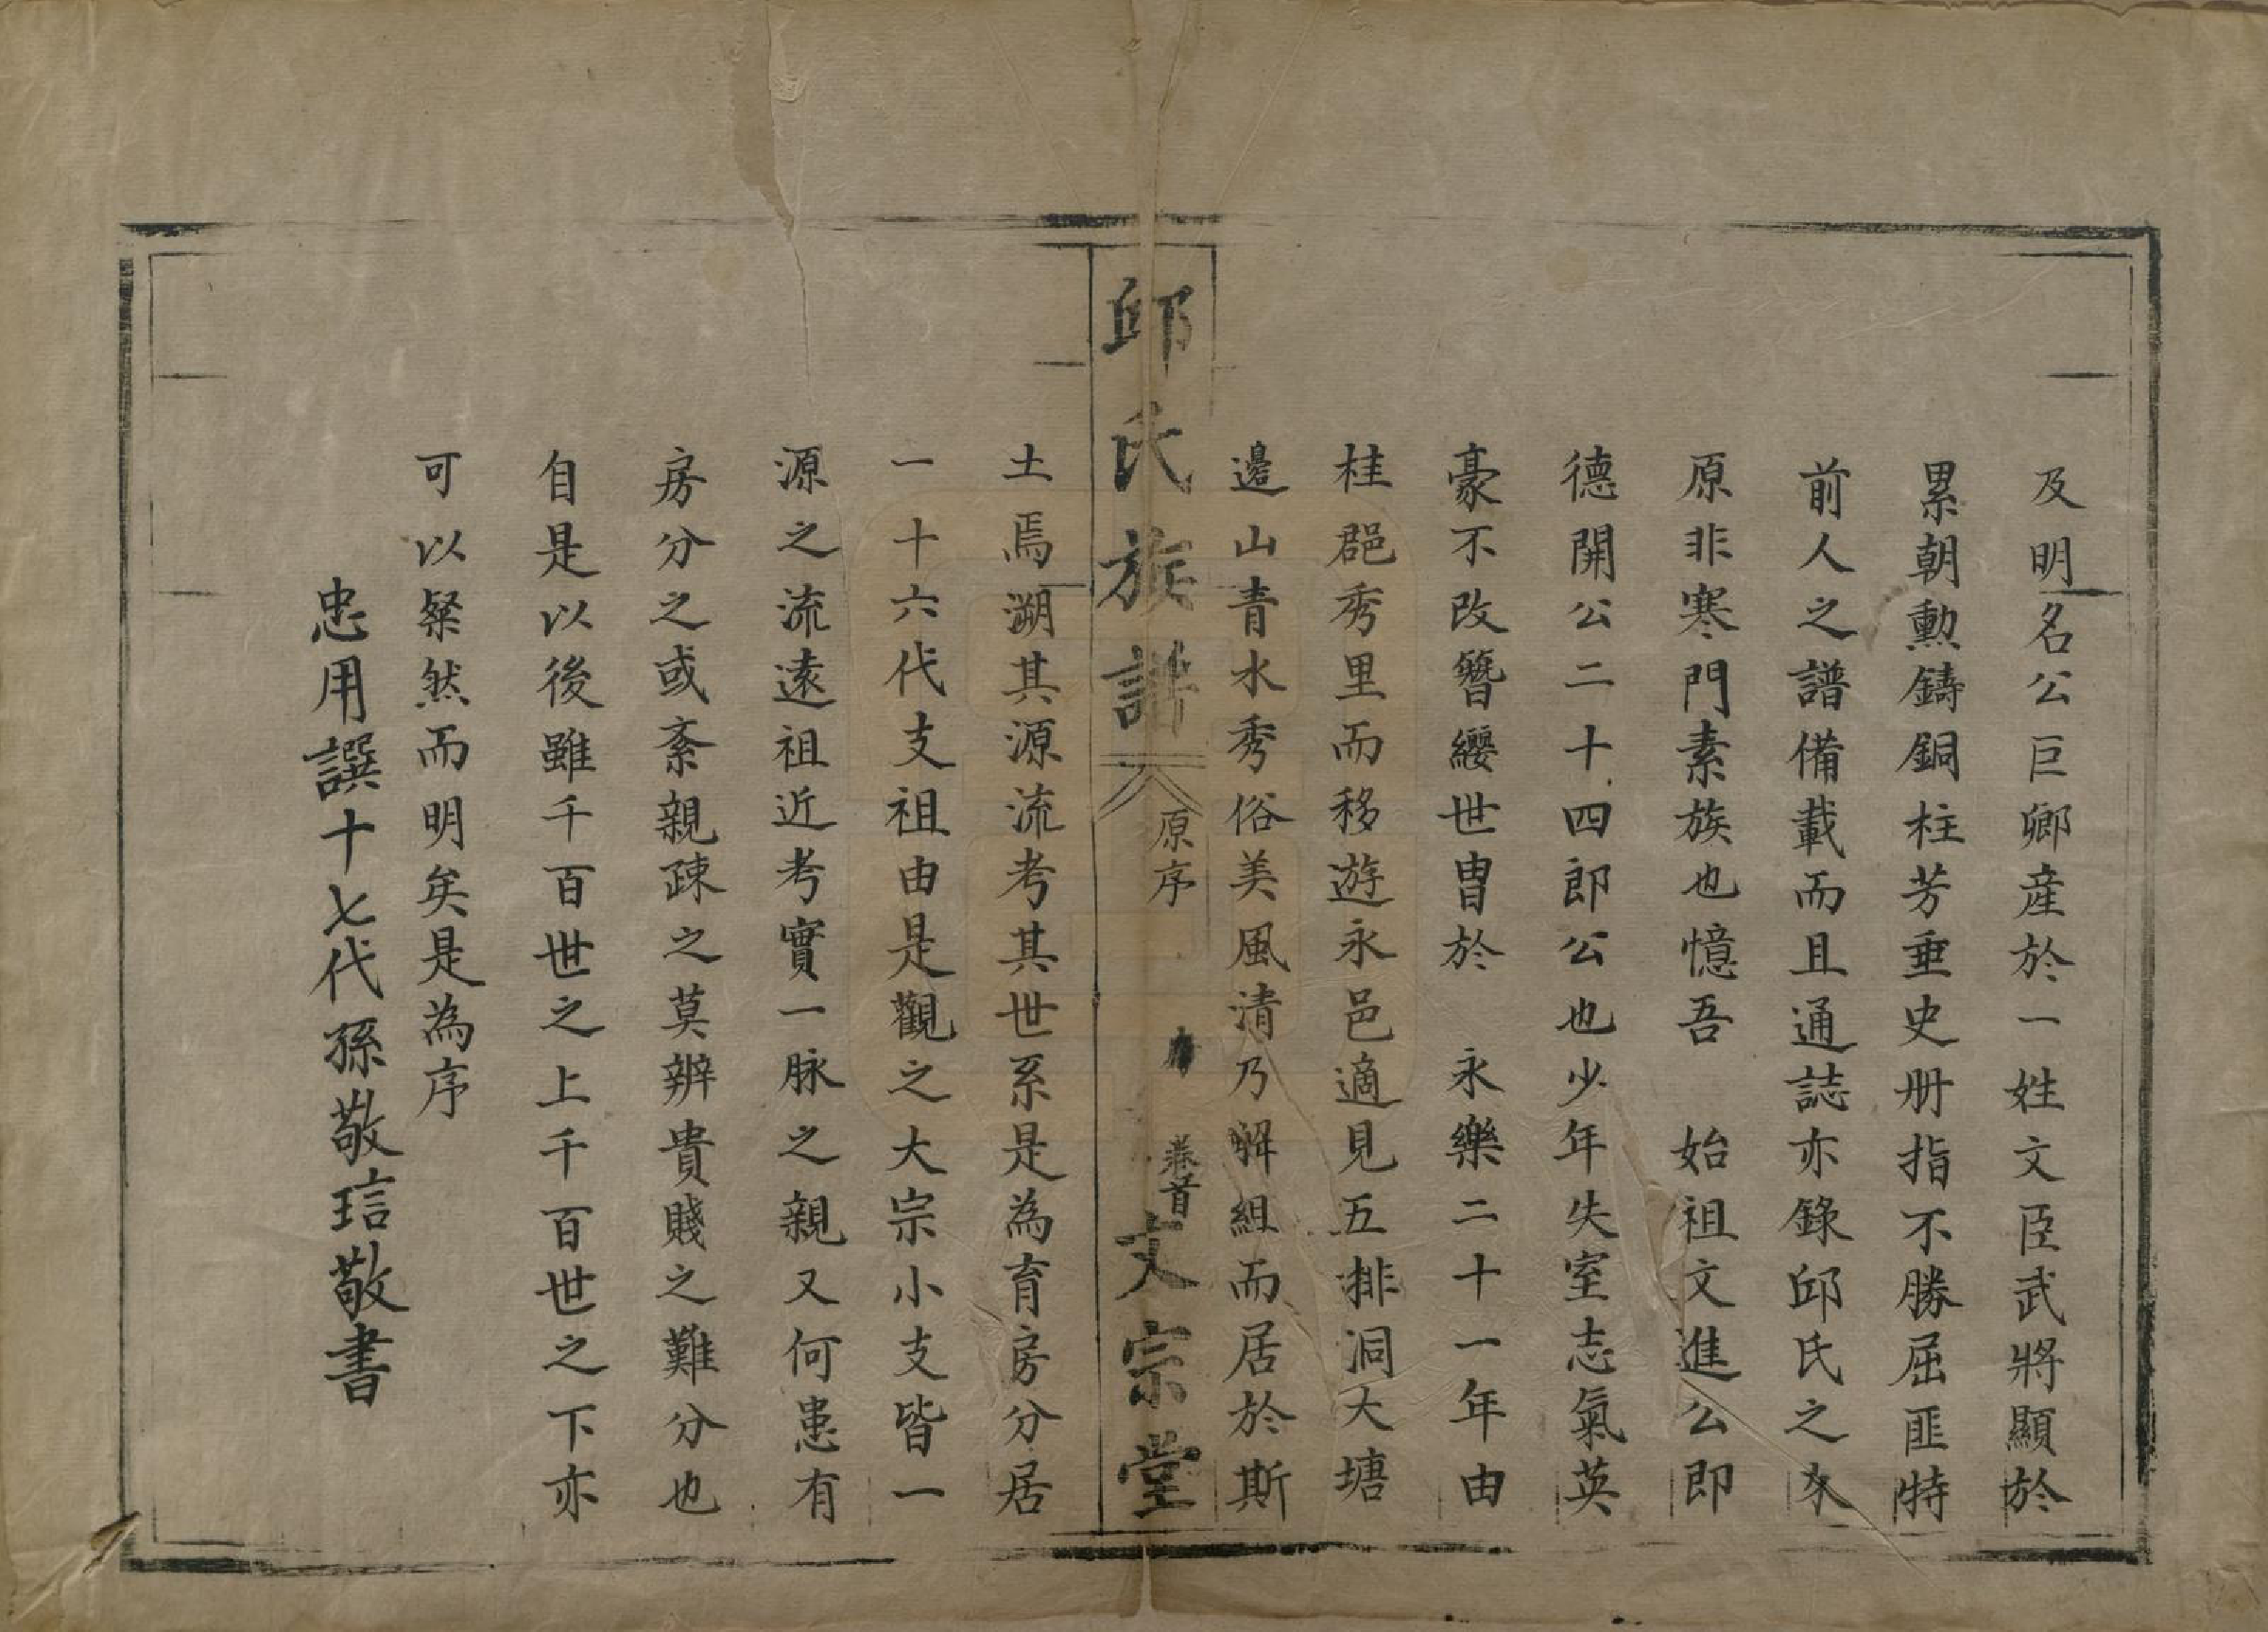 及明名公巨卿産於一姓文臣武將顯於
累朝勲鑄銅柱芳垂史册指不勝屈匪特
前人之譜備載而且通誌亦錄邱氏之來
原非寒門素族也憶吾　始祖文進公即
德開公二十四郎公也少年失室志氣英
豪不改簪纓世胄於　永樂二十一年由
桂郡秀里而移遊永邑適見五排洞大塘
邉山青水秀俗美風清乃解組而居於斯
邱氏族譜
原序
卷首
文宗堂
土焉溯其源流考其世系是為育房分居
一十六代支祖由是觀之大宗小支皆一
源之流遠祖近考實一脉之親又何患有
房分之或紊親疎之莫辨貴賤之難分也
自是以後雖千百世之上千百世之下亦
可以粲然而明矣是為序
忠用譔十七代孫敬琂敬書